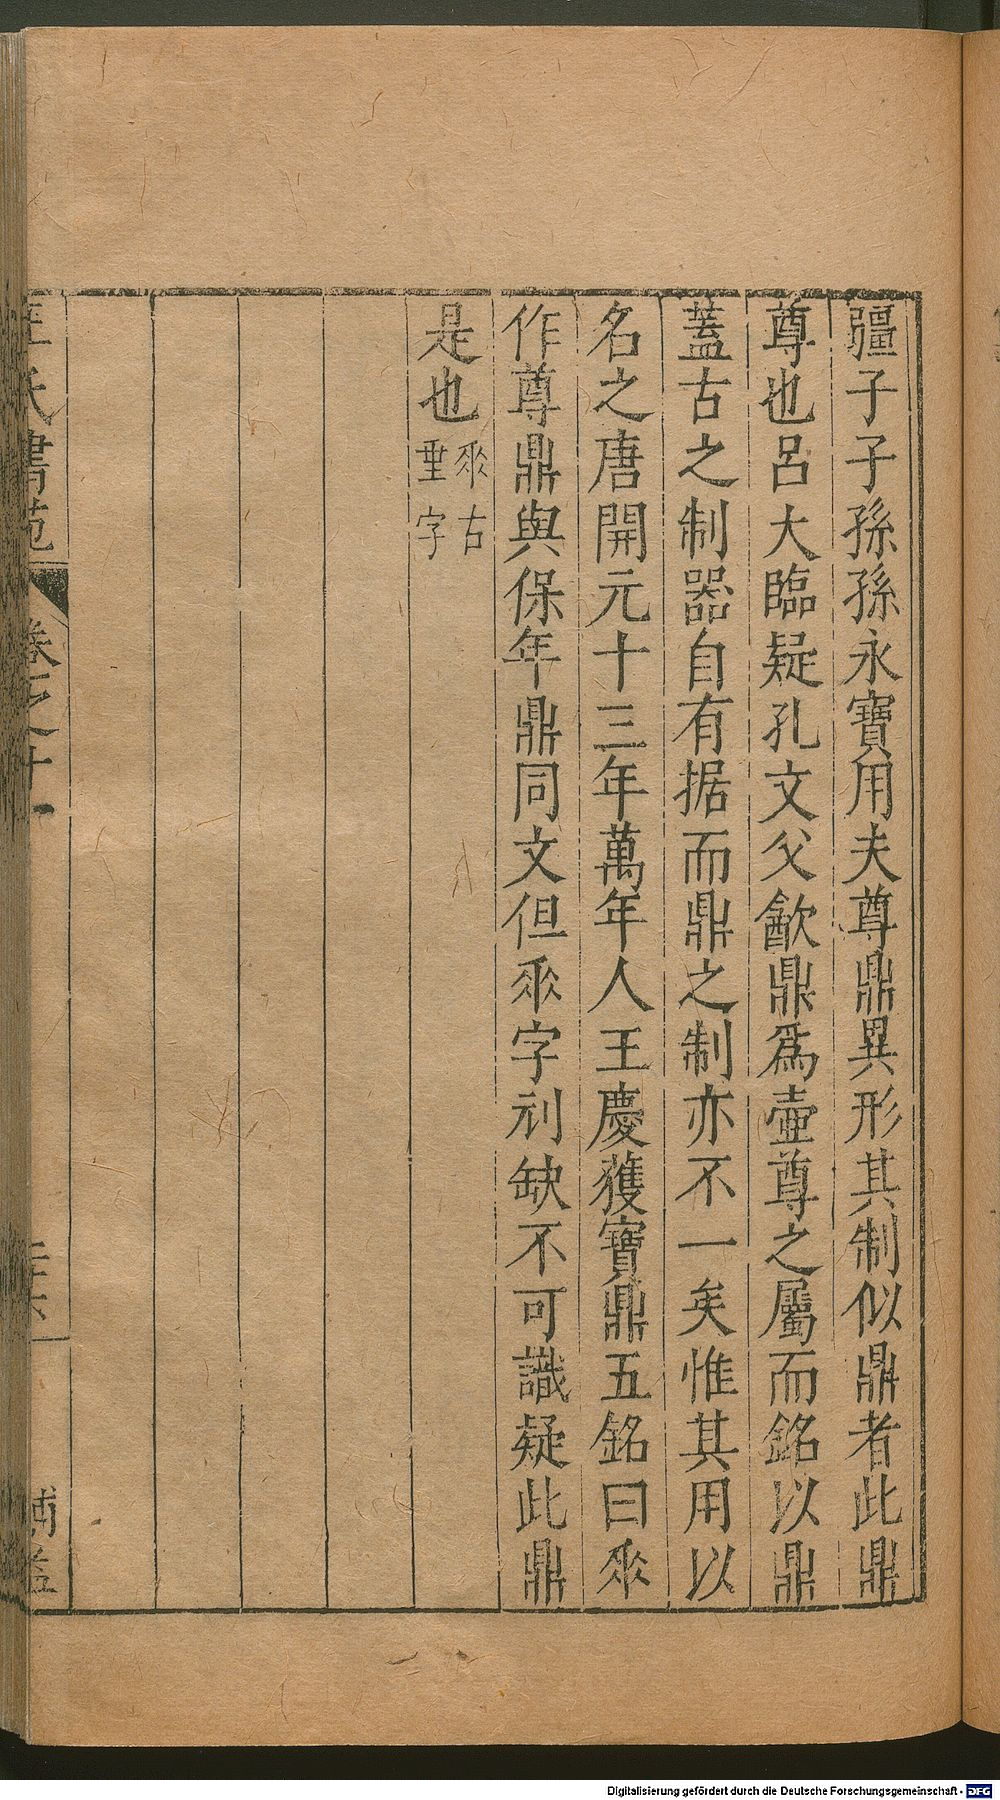 疆子子孫孫永寶用夫尊鼎異形其制似鼎者此鼎
尊也呂大臨疑孔文父歈鼎爲壷尊之屬而銘以鼎
蓋古之制器自有据而鼎之制亦不一矣惟其用以
名之唐開元十三年萬年人王慶獲寶鼎五銘曰𠂹
作尊鼎與保年鼎同文但𠂹字刓缺不可識疑此鼎
是也𠂹古
垂字
氏書苑 卷之十一
補益
Digitalisierung gefördert durch die Deutsche Forschungsgemeinschaft - DFG